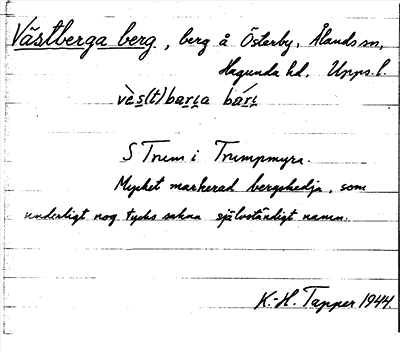 Västberga berg, berg å Österby, Ålands sn,
Hagunda hd, Upps. l.
vè̀s(t)barɩa bárɩ
S Trum i Trumpmyra.
Mycket markerad bergskedja, som
underligt nog tycks sakna självständigt namn.
K.-H. Tapper 1944.